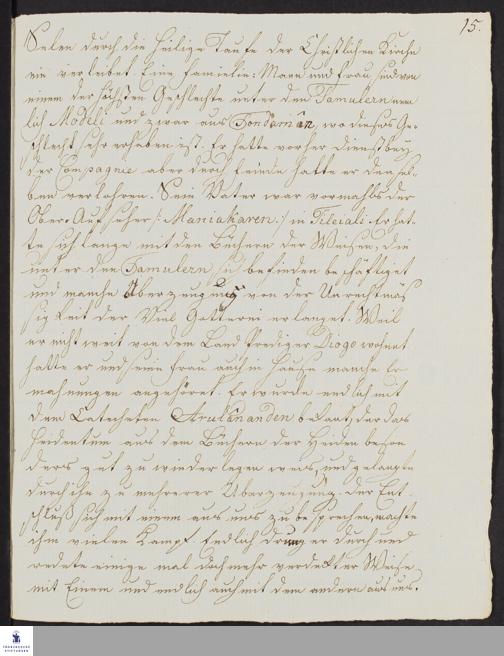 15.
Selen durch die heilige Taufe der Christlichen Kirche
ein verleibet. Eine familie: Mann und frau, sind von
einem der höchsten Geschlechte unter den Tamulern nem
lich Modeli und zwar aus Tondamân, wo dieses Ge-
schlecht sehr erhaben ist. Er hatte vorher dienst bey
der Compagnie aber durch feinde hatte er densel-
ben verlohren. Sein Vater war vormahls der
Ober-Aufseher /: Maniakaren :/ in Tileiali. Er hat-
te sich lange mit den Büchern der Weisen, die
unter den Tamulern sich befinden beschäftiget
und manche Überzeugung von der Unrechtmäs
sigkeit der Viel Götterei erlanget. Weil
er nicht weit von dem Land Prediger Diogo wohnet
hatte er und seine frau auch in Hause manche Er
mahnungen angehöret. Er wurde endlich mit
dem Catecheten Arulânanden bekant, der das
Heidentum aus den Büchern der Heiden beson
ders gut zu wiederlegen weis, und gelangte
durch ihn zu mehrerer Überzeugung. Der Ent-
schluß sich mit einem aus uns zu besprechen, machte
ihm vielen Kampf. Endlich drung er durch und
redete einige mal doch mehr verdekter Weise
mit Einem und endlich auch mit dem andern aus uns.
FRANCKESCHE
STIFTUNGEN